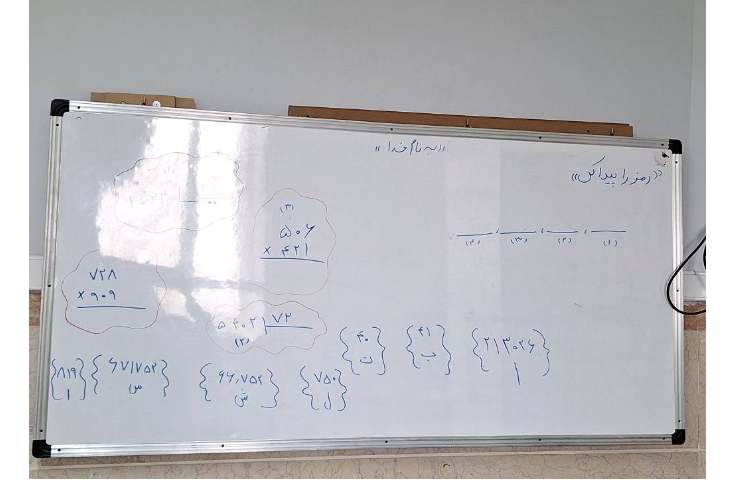 «به نام خدا»
«رمز را پیدا کن»
(۱) (۲) (۳) (۴)
(۳)
۵۰۶
× ۴۲۱
۷۲۸
× ۹۰۹
۷۲
(۲)
۴۰
ت
۴۱
ب
۲۱۳۰۲۶
ا
۸۱۹
ا
۶۷۱۷۵۲
س
۹۶,۷۵۲
ش
۷۵۰
ل